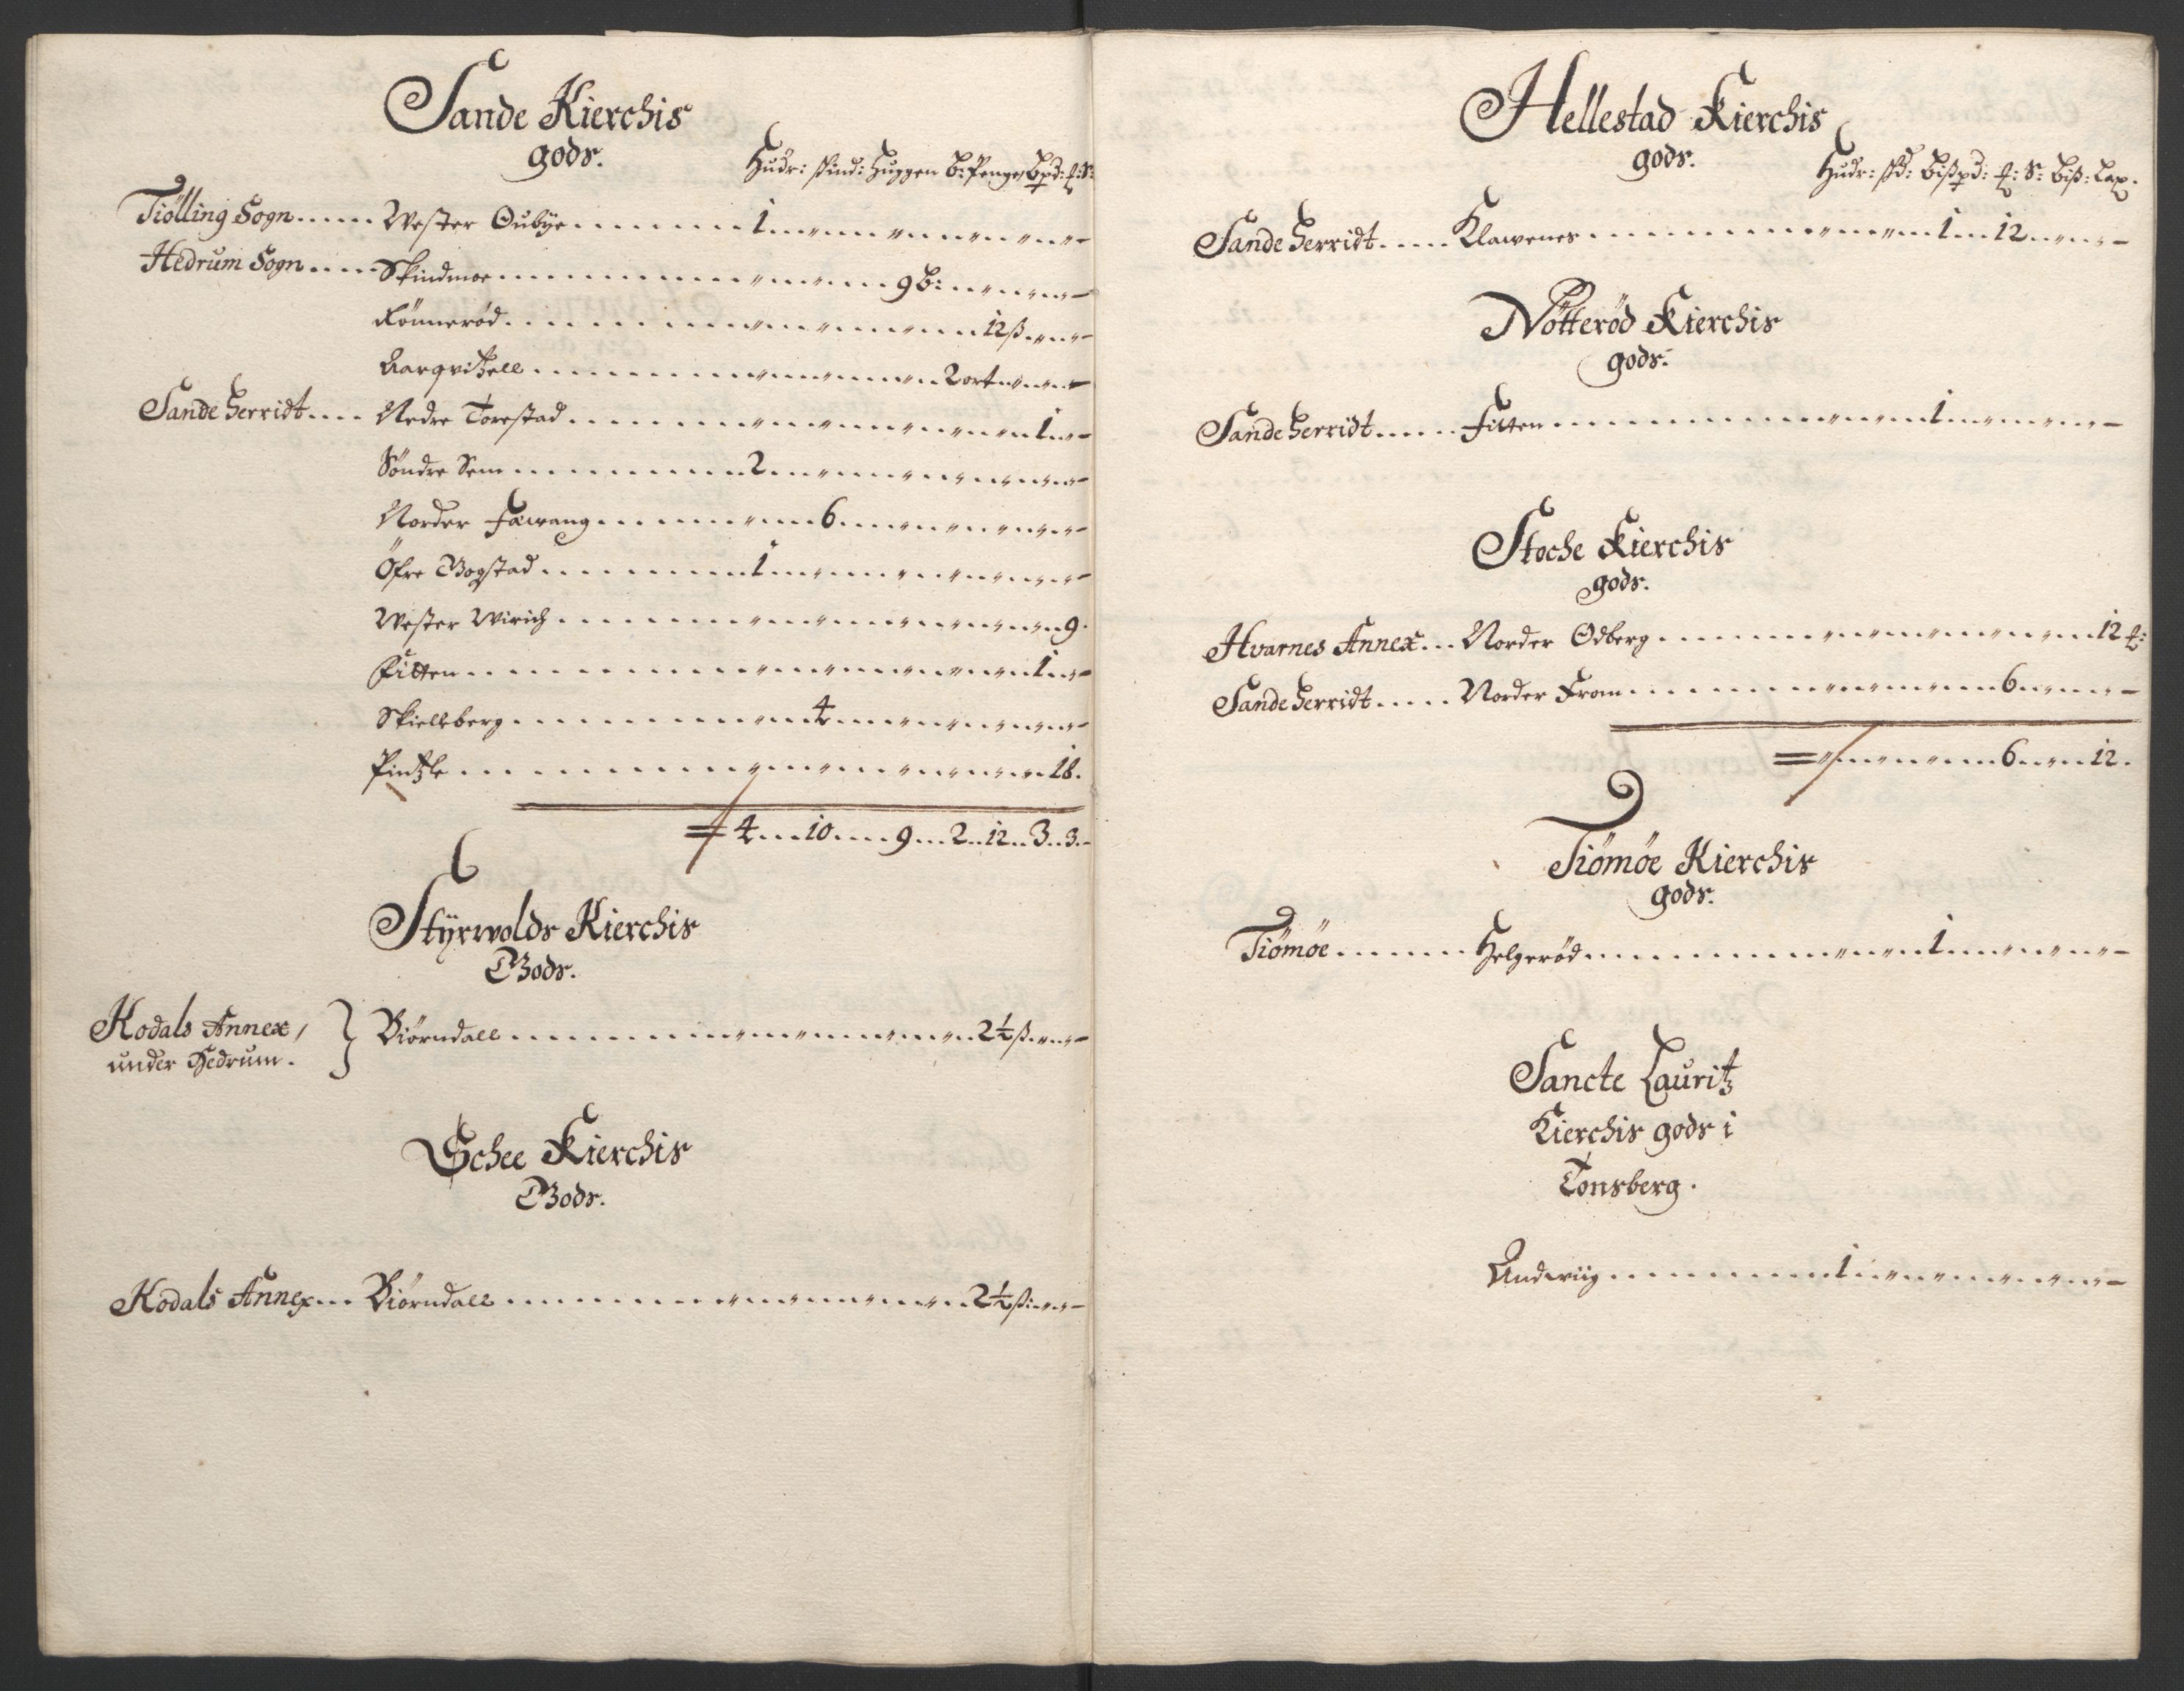 Sande Kierchis
gods.
Hudr: skind: Huggen b: Penge, bpd: ℔: S:
Tiölling Sogn...... Wester Oubÿe............1
Hedrum Sogn..... Skindmoe............9 b:
Rönnerød............12 ß
Aarqvitzell............2 ort
Sande herridt.... Nedre Torestad............1
Söndre Sem............2
Norder Fæwang............6
Öfre Bogstad............1
Wester Wirich............9.
Fitten............1
Skiellberg............4
Pintzle............18.
= 4...10....9...2..12..3..3.
Stÿrwolds Kierchis
Gods.
Kodals Annex,
under Hedrum.
Biørndall............2½ ß
Schee Kierchis
Gods.
Kodals Annex... Biørndall............2½ ß
Hellestad Kierchis
gods.
Hudr: skd: bißpd: ℔: S: biß: Lax.
Sande herridt..... Klawenes............1...12
Nötterød Kierchis
gods.
Sande herridt...... Fitten............1
Stoche Kierchis
gods.
Hvarnes Annex... Norder Odberg............12 ℔:
Sande herridt..... Norder From............6
= 6......12.
Tiömøe Kierchis
gods.
Tiömøe....... Helgerød............1
Sancte Lauritz
Kierchis gods i
Tonsberg.
Andwiig............1